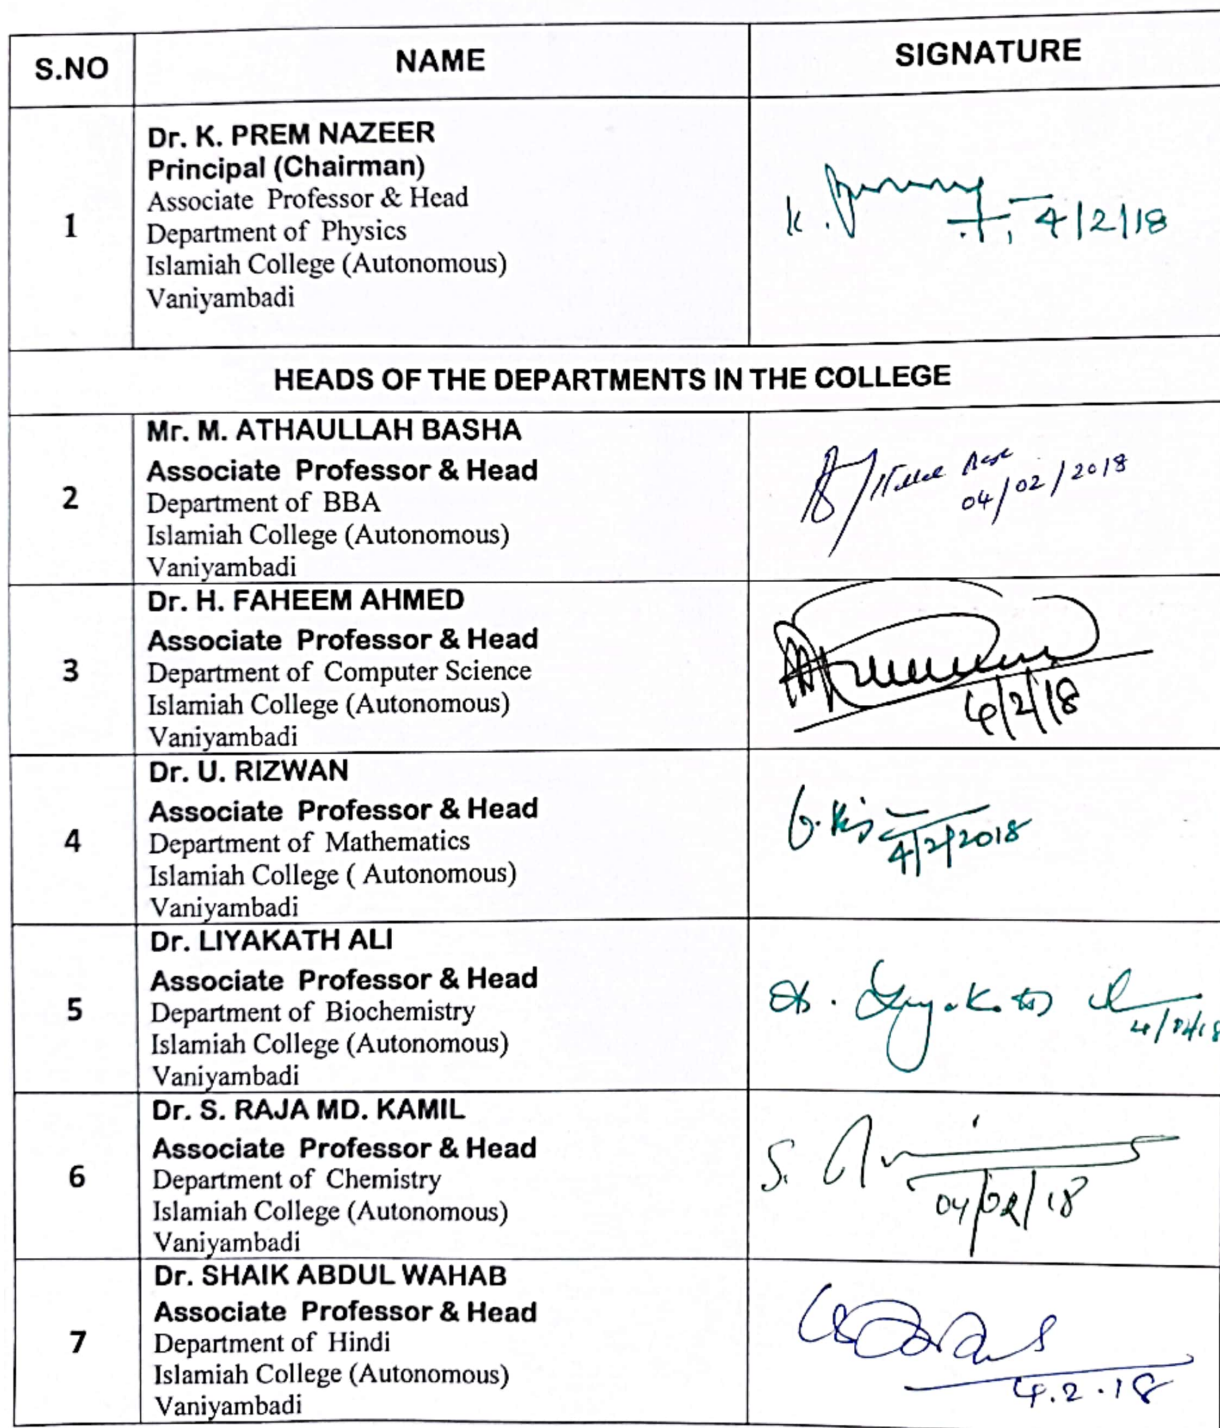 S.NO NAME SIGNATURE
1
Dr. K. PREM NAZEER
Principal (Chairman)
Associate Professor & Head
Department of Physics
Islamiah College (Autonomous)
Vaniyambadi
K. 4/2/18
HEADS OF THE DEPARTMENTS IN THE COLLEGE
2
Mr. M. ATHAULLAH BASHA
Associate Professor & Head
Department of BBA
Islamiah College (Autonomous)
Vaniyambadi
04/02/2018
3
Dr. H. FAHEEM AHMED
Associate Professor & Head
Department of Computer Science
Islamiah College (Autonomous)
Vaniyambadi
4/2/18
4
Dr. U. RIZWAN
Associate Professor & Head
Department of Mathematics
Islamiah College ( Autonomous)
Vaniyambadi
4/2/2018
5
Dr. LIYAKATH ALI
Associate Professor & Head
Department of Biochemistry
Islamiah College (Autonomous)
Vaniyambadi
6
Dr. S. RAJA MD. KAMIL
Associate Professor & Head
Department of Chemistry
Islamiah College (Autonomous)
Vaniyambadi
S.
04/02/18
7
Dr. SHAIK ABDUL WAHAB
Associate Professor & Head
Department of Hindi
Islamiah College (Autonomous)
Vaniyambadi
4.2.18